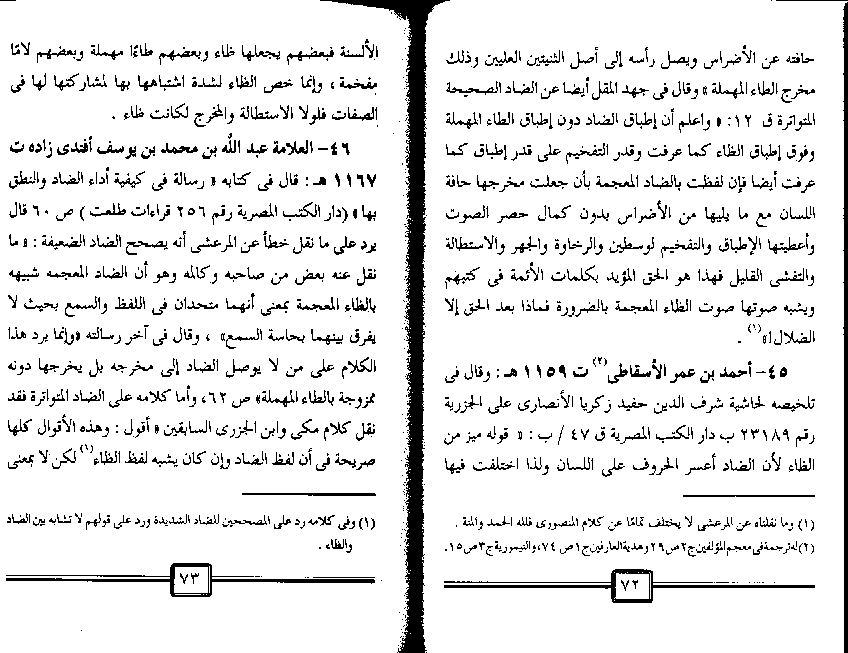 حافته عن الأضراس ويصل رأسه إلى أصل الثنيتين العليين وذلك
مخرج الطاء المهملة » وقال فى جهد المقل أيضا عن الضاد الصحيحة
المتواترة ق ١٢ : « واعلم أن إطباق الضاد دون إطباق الطاء المهملة
وفوق إطباق الظاء كما عرفت وقدر التفخيم على قدر إطباق كما
عرفت أيضا فإن لفظت بالضاد المعجمة بأن جعلت مخرجها حافة
اللسان مع ما يليها من الأضراس بدون كمال حصر الصوت
وأعطيتها الإطباق والتفخيم لوسطين والرخاوة والجهر والاستطالة
والتفشى القليل فهذا هو الحق المؤيد بكلمات الأئمة فى كتبهم
ويشبه صوتها صوت الظاء المعجمة بالضرورة فماذا بعد الحق إلا
الضلال!»(١) .
٤٥- أحمد بن عمر الأسقاطى(٢) ت ١١٥٩ هـ : وقال فى
تلخيصه لحاشية شرف الدين حفيد زكريا الأنصارى على الجزرية
رقم ٢٣١٨٩ ب دار الكتب المصرية ق ٤٧ / ب : « قوله ميز من
الظاء لأن الضاد أعسر الحروف على اللسان ولذا اختلفت فيها
(١) وما نقلناه عن المرعشى لا يختلف تمامًا عن كلام المنصورى فلله الحمد والمنة .
(٢) له ترجمة فى معجم المؤلفين ج٢ ص ٢٩ وهدية العارفين ج١ ص ٧٤، والتيمورية ج٣ ص ١٥.
٧٢
الألسنة فبعضهم يجعلها ظاء وبعضهم طاءًا مهملة وبعضهم لامًا
مفخمة ، وإنما خص الظاء لشدة اشتباهها بها لمشاركتها لها فى
الصفات فلولا الاستطالة والمخرج لكانت ظاء .
٤٦- العلامة عبد الله بن محمد بن يوسف أفندى زاده ت
١١٦٧ هـ : قال فى كتابه « رسالة فى كيفية أداء الضاد والنطق
بها » (دار الكتب المصرية رقم ٢٥٦ قراءات طلعت ) ص ٦٠ قال
يرد على ما نقل خطأ عن المرعشى أنه يصحح الضاد الضعيفة : « ما
نقل عنه بعض من صاحبه وكالمه وهو أن الضاد المعجمه شبيهه
بالظاء المعجمة بمعنى أنهما متحدان فى اللفظ والسمع بحيث لا
يفرق بينهما بحاسة السمع» ، وقال فى آخر رسالته «وإنما يرد هذا
الكلام على من لا يوصل الضاد إلى مخرجه بل يخرجها دونه
ممزوجة بالطاء المهملة» ص ٦٢، وأما كلامه على الضاد المتواترة فقد
نقل كلام مكى وابن الجزرى السابقين « أقول : وهذه الأقوال كلها
صريحة فى أن لفظ الضاد وإن كان يشبه لفظ الظاء(١) لكن لا بمعنى
(١) وفى كلامه رد على المصححين للضاد الشديدة ورد على قولهم لا تشابه بين الضاد
والظاء .
٧٣